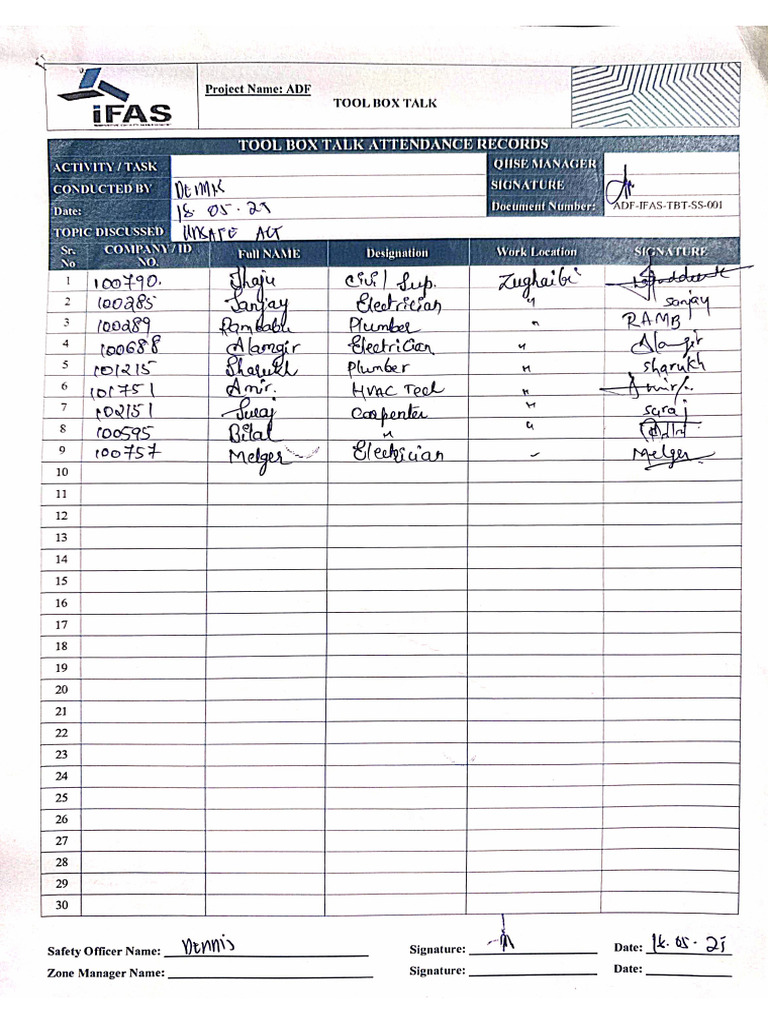 iFAS
Project Name: ADF
TOOL BOX TALK
TOOL BOX TALK ATTENDANCE RECORDS
ACTIVITY / TASK QHSE MANAGER
CONDUCTED BY Dennis SIGNATURE
Date: 18.05.25 Document Number: ADF-IFAS-TBT-SS-001
TOPIC DISCUSSED UNSAFE ACT
Sr. No COMPANY / ID NO. Full NAME Designation Work Location SIGNATURE
1 100790. Shaju Civil Sup. Zughaibi
2 100285 Sanjay Electrician " sanjay
3 100289 Rambabu Plumber " RAMB
4 100688 Alamgir Electrician " Alamgir
5 101215 Sharukh Plumber " sharukh
6 101751 Amir. HVAC Tech " Amir
7 102151 Suraj Carpenter " suraj
8 100595 Bilal " "
9 100757 Melger Electrician " Melger
10
11
12
13
14
15
16
17
18
19
20
21
22
23
24
25
26
27
28
29
30
Safety Officer Name: Dennis Signature: Date: 18.05.25
Zone Manager Name: Signature: Date: